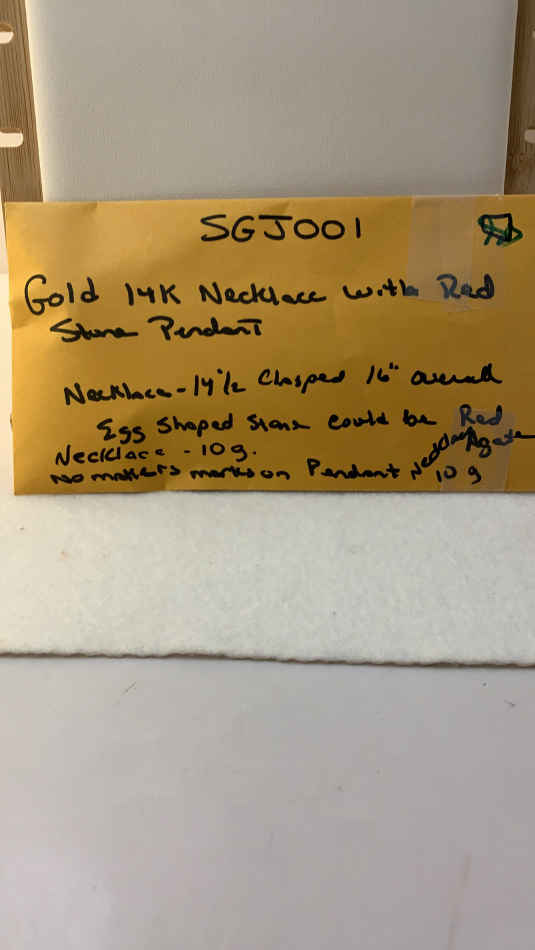 SGJ001
Gold 14K Necklace with Red
Stone Pendant
Necklace - 14 1/2 Clasped 16" overall
Egg Shaped Stone could be Red
Agate
Necklace - 10g.
No makers marks on Pendant Necklace
10 g